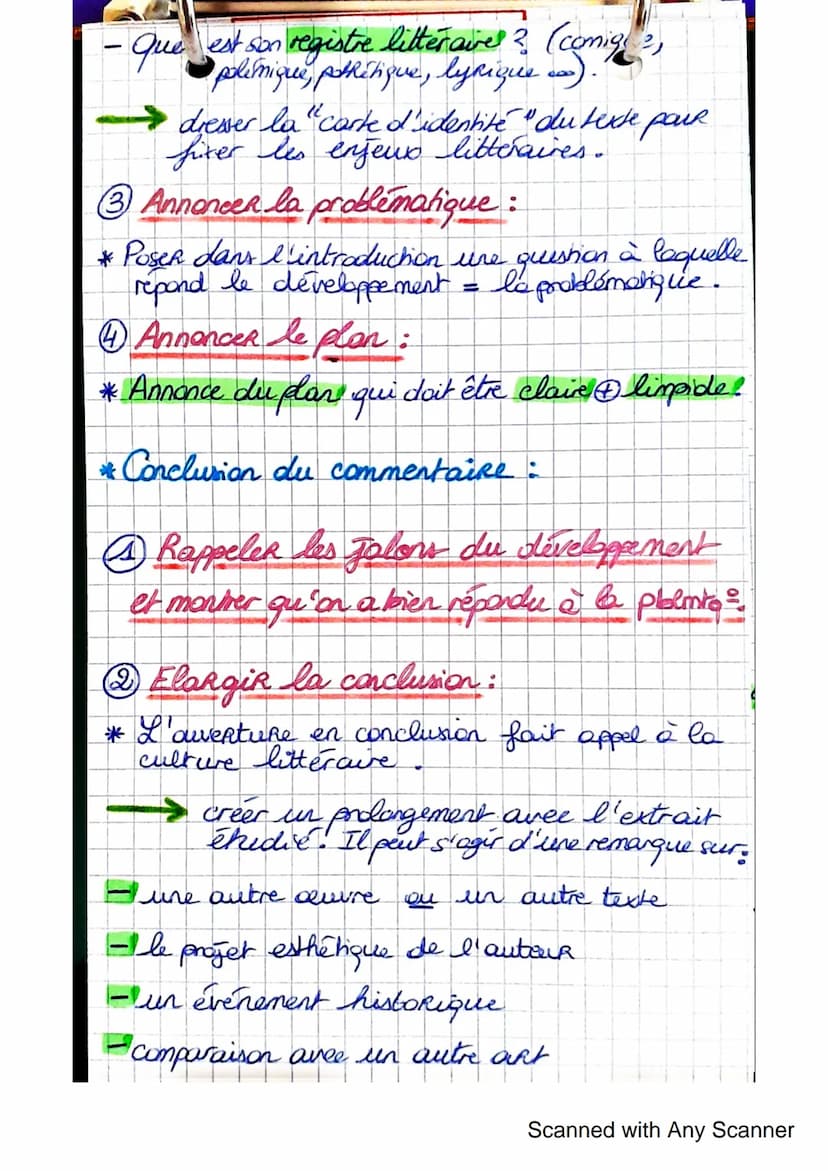 - Quel est son registre littéraire ? (comique,
polémique, pathétique, lyrique ...).
→ dresser la "carte d'identité" du texte pour
fixer les enjeux littéraires.
③ Annoncer la problématique :
* Poser dans l'introduction une question à laquelle
répond le développement = la problématique.
④ Annoncer le plan :
* Annonce du plan qui doit être claire ⊕ limpide!
* Conclusion du commentaire :
① Rappeler les jalons du développement
et montrer qu'on a bien répondu à la pblmtqe.
② Elargir la conclusion :
* L'ouverture en conclusion fait appel à la
culture littéraire.
→ créer un prolongement avec l'extrait
étudié! Il peut s'agir d'une remarque sur:
- une autre œuvre ou un autre texte
- le projet esthétique de l'auteur
- un événement historique
- comparaison avec un autre art
Scanned with Any Scanner